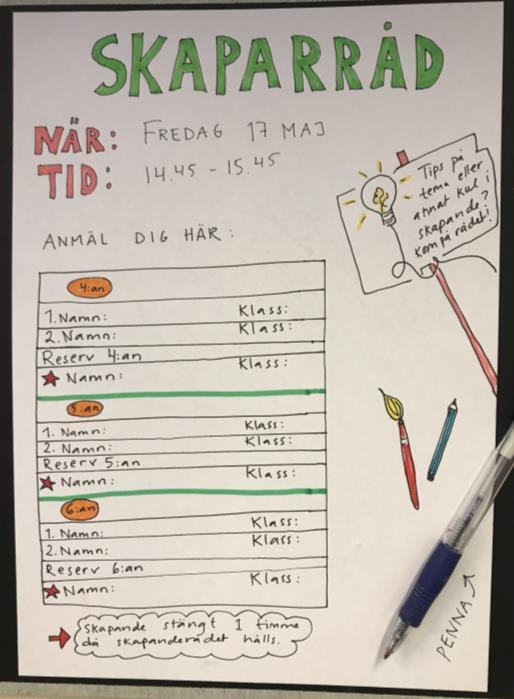 SKAPARRÅD
NÄR: FREDAG 17 MAJ
TID: 14.45 - 15.45
Tips på
tema eller
annat kul i
skapande?
Kom på rådet!
ANMÄL DIG HÄR:
4:an
1. Namn: Klass:
2. Namn: Klass:
Reserv 4:an
Namn: Klass:
5:an
1. Namn: Klass:
2. Namn: Klass:
Reserv 5:an
Namn: Klass:
6:an
1. Namn: Klass:
2. Namn: Klass:
Reserv 6:an
Namn: Klass:
Skapande stängt 1 timme
då skapanderådet hålls.
PENNA